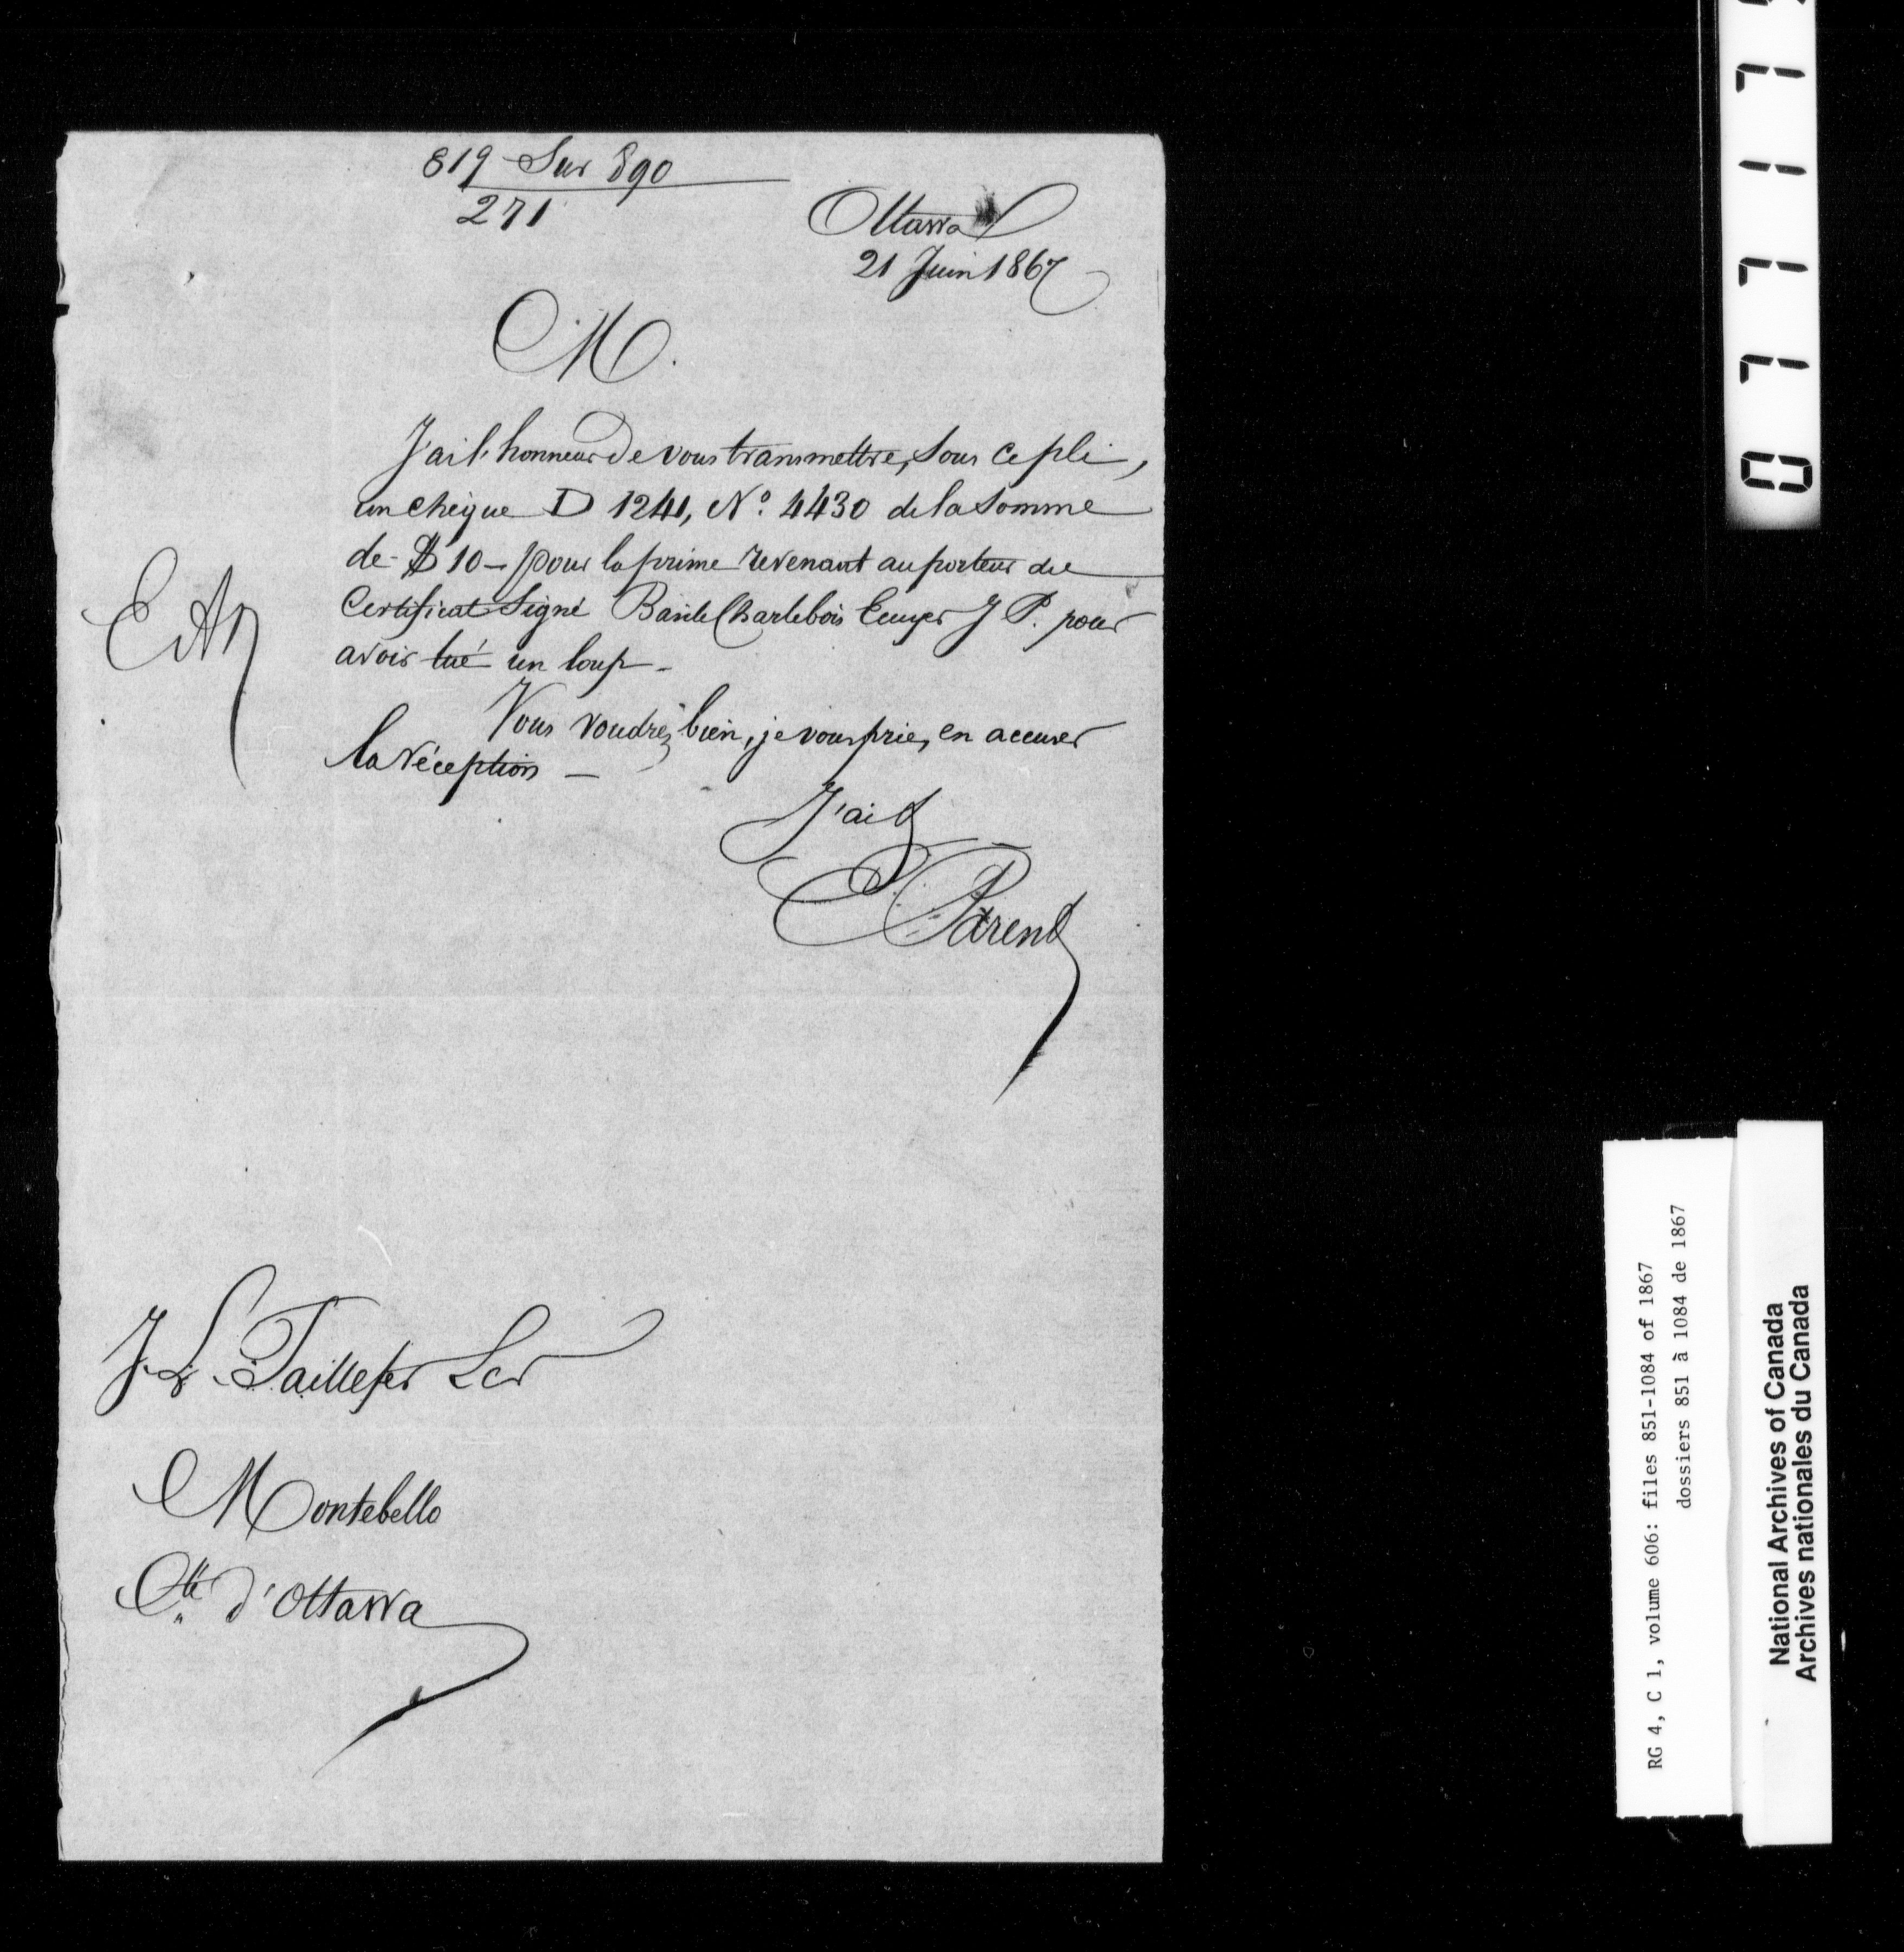 819 Sur 890
271
Ottawa
21 Juin 1867
M.
J'ai l'honneur de vous transmettre, sous ce pli,
un chèque D 1241, No. 4430 de la somme
de $ 10 - pour la prime revenant au porteur du
Certificat signé Basile Charlebois Ecuyer J P. pour
avoir tué un loup -
Vous voudrez bien, je vous prie, en accuser
la réception -
J'ai &
E Parent
J. L. Taillefer Ecr
Montebello
Cté d'Ottawa
07717
RG 4, C 1, volume 606: files 851-1084 of 1867
dossiers 851 à 1084 de 1867
National Archives of Canada
Archives nationales du Canada